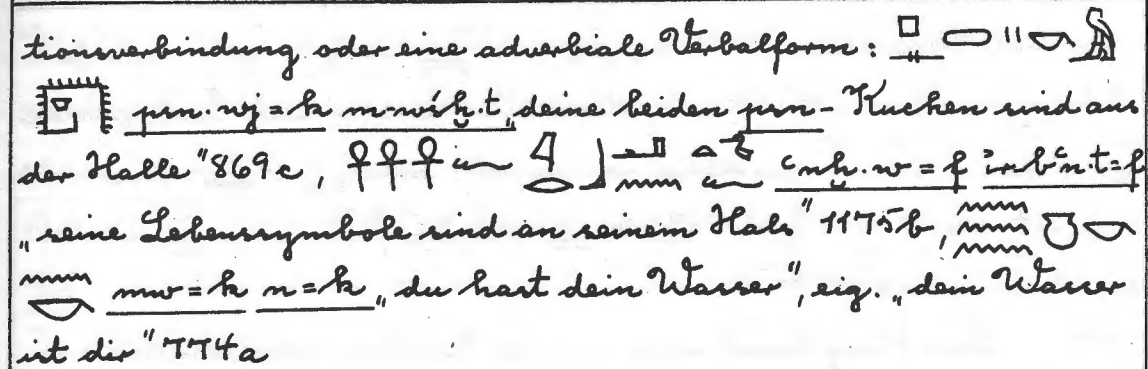 tionsverbindung oder eine adverbiale Verbalform:
psn.wj=k m wśḫ.t „deine beiden psn-Kuchen sind aus
der Halle" 869c, 𓋹𓋹𓋹𓆑 ꜥnḫ.w=f ı͗r bꜥn.t=f
„seine Lebenssymbole sind an seinem Hals" 1175b, 𓈗𓏌𓎡
𓈖𓎡 mw=k n=k „du hast dein Wasser", eig. „dein Wasser
ist dir" 774a